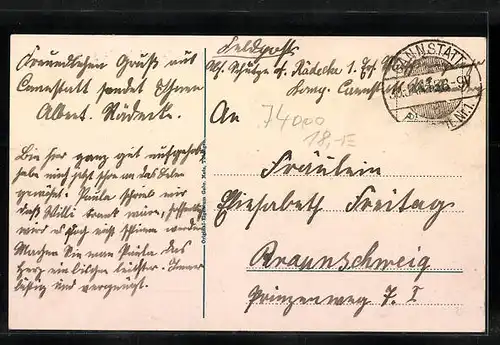 Freundlichen Gruß aus
Cannstatt sendet Ihnen
Albert Rädecke.
Bin hier ganz gut aufgehoben
habe mich jetzt schon an das Leben
gewöhnt. Paula schrieb mir
daß Willi krank wäre, hoffentlich
wird es auch nicht schlimm werden
Machen Sie man Paula das
Herz ein bischen leichter. Immer
lustig und vergnügt.
Feldpost
Abs. Schütze A. Rädecke 1. Ers.
Komp. Cannstatt
CANNSTATT
An
74000
18,-
Fräulein
Elisabeth Freitag
Braunschweig
Prinzenweg 7. I